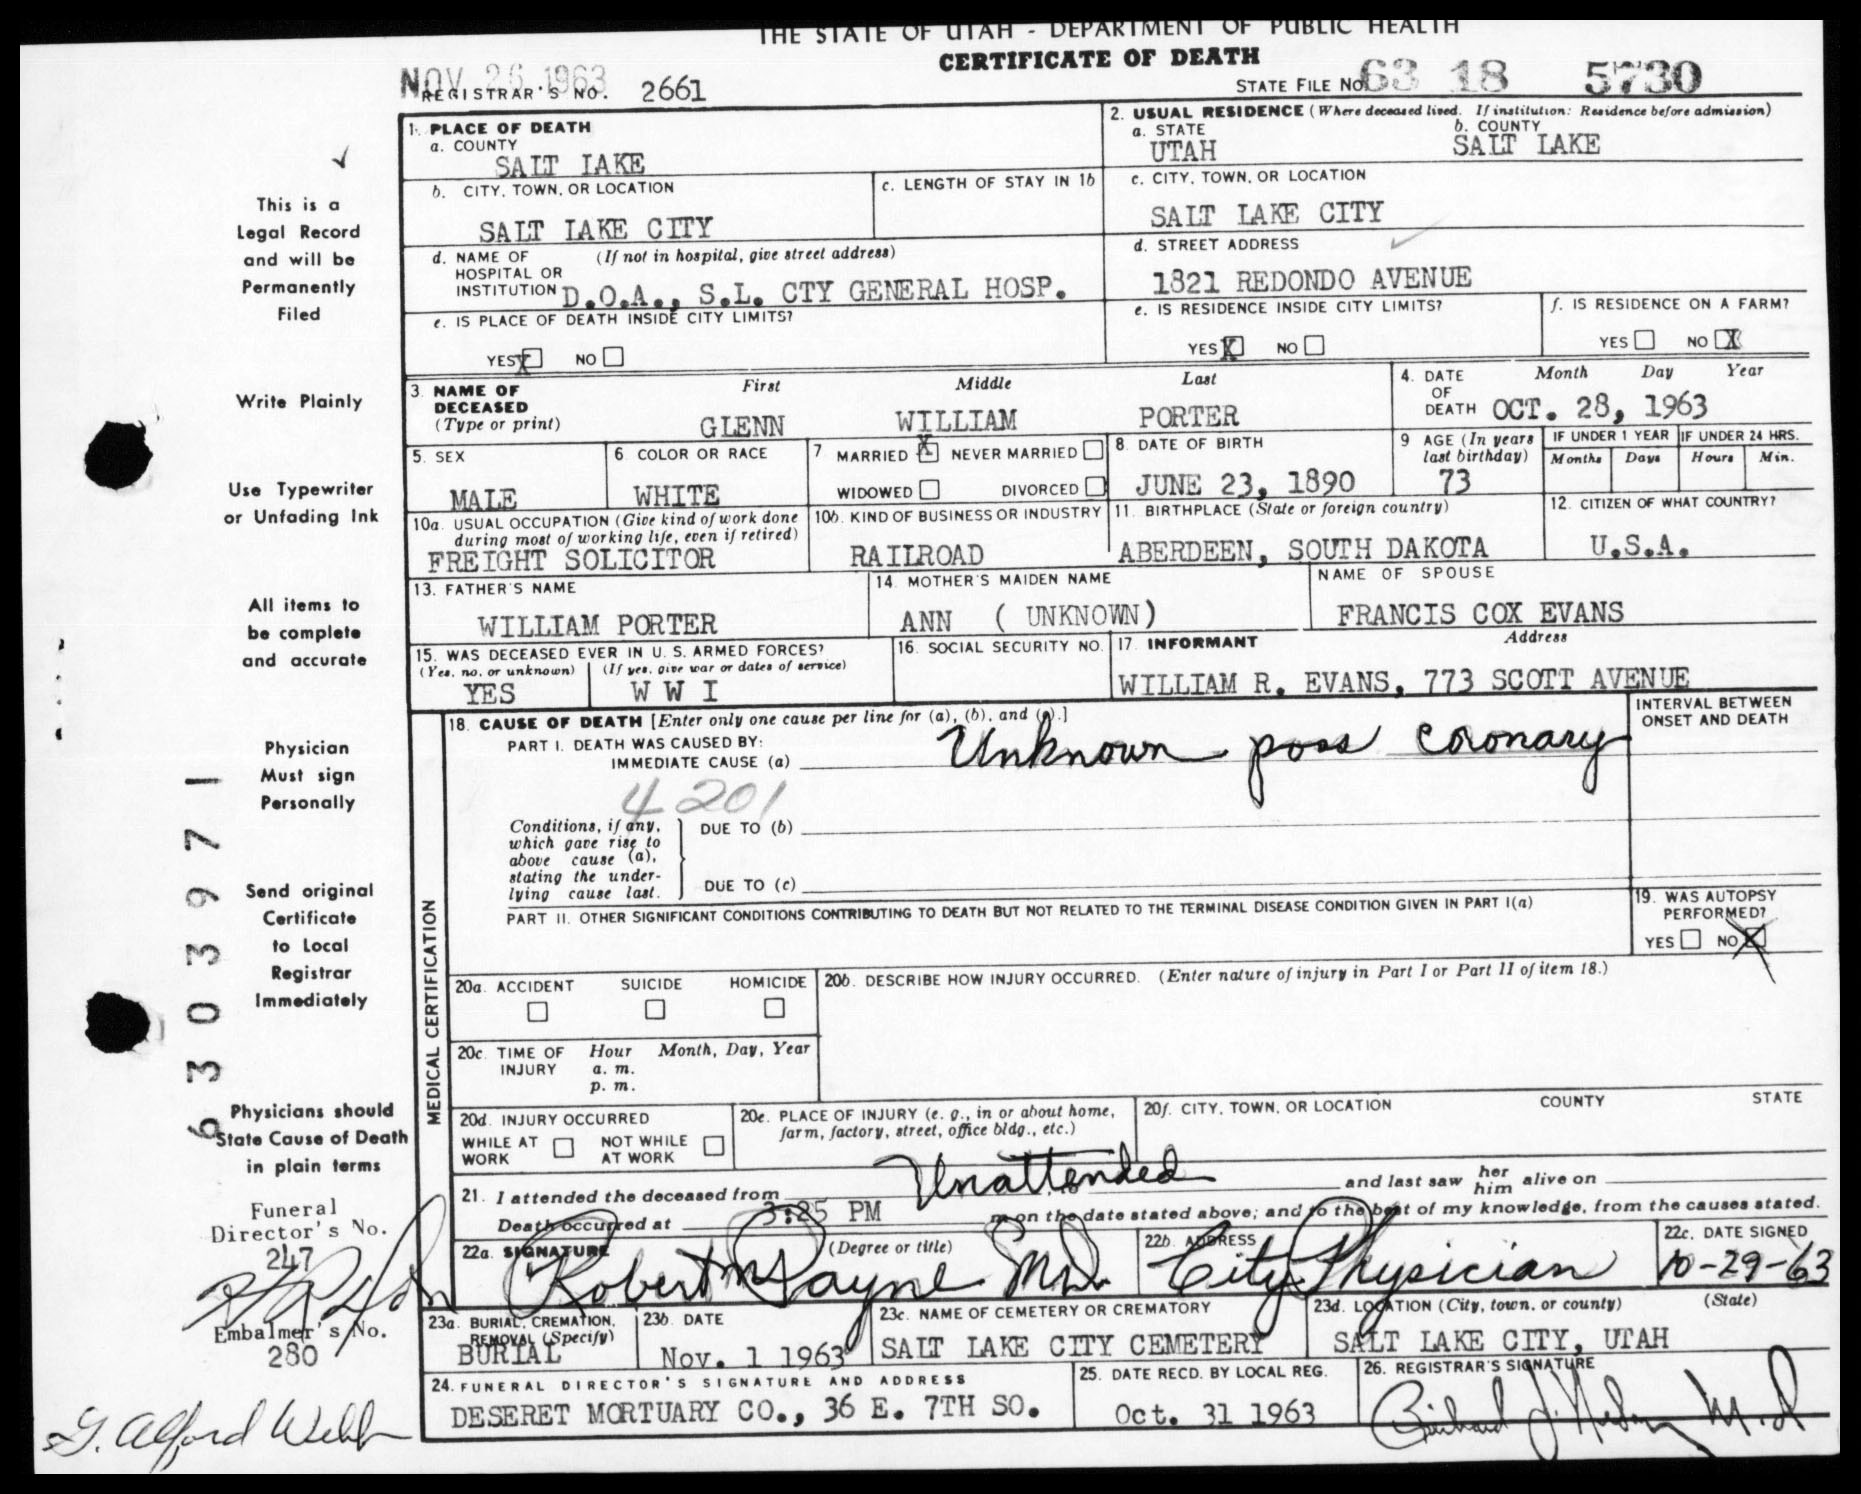 THE STATE OF UTAH - DEPARTMENT OF PUBLIC HEALTH
CERTIFICATE OF DEATH
NOV 26 1963
REGISTRAR'S NO. 2661
STATE FILE NO. 63 18 5730
1. PLACE OF DEATH
a. COUNTY
SALT LAKE
2. USUAL RESIDENCE (Where deceased lived. If institution: Residence before admission)
a. STATE b. COUNTY
UTAH SALT LAKE
b. CITY, TOWN, OR LOCATION
SALT LAKE CITY
c. LENGTH OF STAY IN 1b
c. CITY, TOWN, OR LOCATION
SALT LAKE CITY
d. NAME OF HOSPITAL OR INSTITUTION (If not in hospital, give street address)
D.O.A., S.L. CTY GENERAL HOSP.
d. STREET ADDRESS
1821 REDONDO AVENUE
e. IS PLACE OF DEATH INSIDE CITY LIMITS?
YES X NO
e. IS RESIDENCE INSIDE CITY LIMITS?
YES X NO
f. IS RESIDENCE ON A FARM?
YES NO X
3. NAME OF DECEASED (Type or print)
First Middle Last
GLENN WILLIAM PORTER
4. DATE OF DEATH Month Day Year
OCT. 28, 1963
5. SEX
MALE
6. COLOR OR RACE
WHITE
7. MARRIED X NEVER MARRIED
WIDOWED DIVORCED
8. DATE OF BIRTH
JUNE 23, 1890
9. AGE (In years last birthday)
73
IF UNDER 1 YEAR IF UNDER 24 HRS.
Months Days Hours Min.
10a. USUAL OCCUPATION (Give kind of work done during most of working life, even if retired)
FREIGHT SOLICITOR
10b. KIND OF BUSINESS OR INDUSTRY
RAILROAD
11. BIRTHPLACE (State or foreign country)
ABERDEEN, SOUTH DAKOTA
12. CITIZEN OF WHAT COUNTRY?
U.S.A.
13. FATHER'S NAME
WILLIAM PORTER
14. MOTHER'S MAIDEN NAME
ANN ( UNKNOWN)
NAME OF SPOUSE
FRANCIS COX EVANS
15. WAS DECEASED EVER IN U. S. ARMED FORCES?
(Yes, no, or unknown) (If yes, give war or dates of service)
YES W W I
16. SOCIAL SECURITY NO.
17. INFORMANT Address
WILLIAM R. EVANS, 773 SCOTT AVENUE
MEDICAL CERTIFICATION
18. CAUSE OF DEATH [Enter only one cause per line for (a), (b), and (c).]
INTERVAL BETWEEN ONSET AND DEATH
PART I. DEATH WAS CAUSED BY:
IMMEDIATE CAUSE (a) Unknown poss coronary
4201
Conditions, if any, which gave rise to above cause (a), stating the underlying cause last.
DUE TO (b)
DUE TO (c)
PART II. OTHER SIGNIFICANT CONDITIONS CONTRIBUTING TO DEATH BUT NOT RELATED TO THE TERMINAL DISEASE CONDITION GIVEN IN PART I(a)
19. WAS AUTOPSY PERFORMED?
YES NO X
20a. ACCIDENT SUICIDE HOMICIDE
20b. DESCRIBE HOW INJURY OCCURRED. (Enter nature of injury in Part I or Part II of item 18.)
20c. TIME OF INJURY Hour Month, Day, Year
a. m.
p. m.
20d. INJURY OCCURRED
WHILE AT WORK NOT WHILE AT WORK
20e. PLACE OF INJURY (e. g., in or about home, farm, factory, street, office bldg., etc.)
20f. CITY, TOWN, OR LOCATION COUNTY STATE
21. I attended the deceased from Unattended to and last saw her him alive on
Death occurred at 3:25 PM m on the date stated above; and to the best of my knowledge, from the causes stated.
22a. SIGNATURE (Degree or title)
Robert M Payne M.D.
22b. ADDRESS
City Physician
22c. DATE SIGNED
10-29-63
23a. BURIAL, CREMATION, REMOVAL (Specify)
BURIAL
23b. DATE
Nov. 1 1963
23c. NAME OF CEMETERY OR CREMATORY
SALT LAKE CITY CEMETERY
23d. LOCATION (City, town, or county) (State)
SALT LAKE CITY, UTAH
24. FUNERAL DIRECTOR'S SIGNATURE AND ADDRESS
DESERET MORTUARY CO., 36 E. 7TH SO.
25. DATE RECD. BY LOCAL REG.
Oct. 31 1963
26. REGISTRAR'S SIGNATURE
Richard M.D
This is a
Legal Record
and will be
Permanently
Filed
Write Plainly
Use Typewriter
or Unfading Ink
All items to
be complete
and accurate
Physician
Must sign
Personally
Send original
Certificate
to Local
Registrar
Immediately
Physicians should
State Cause of Death
in plain terms
Funeral
Director's No.
247
Embalmer's No.
280
G. Alford Webb
6303971